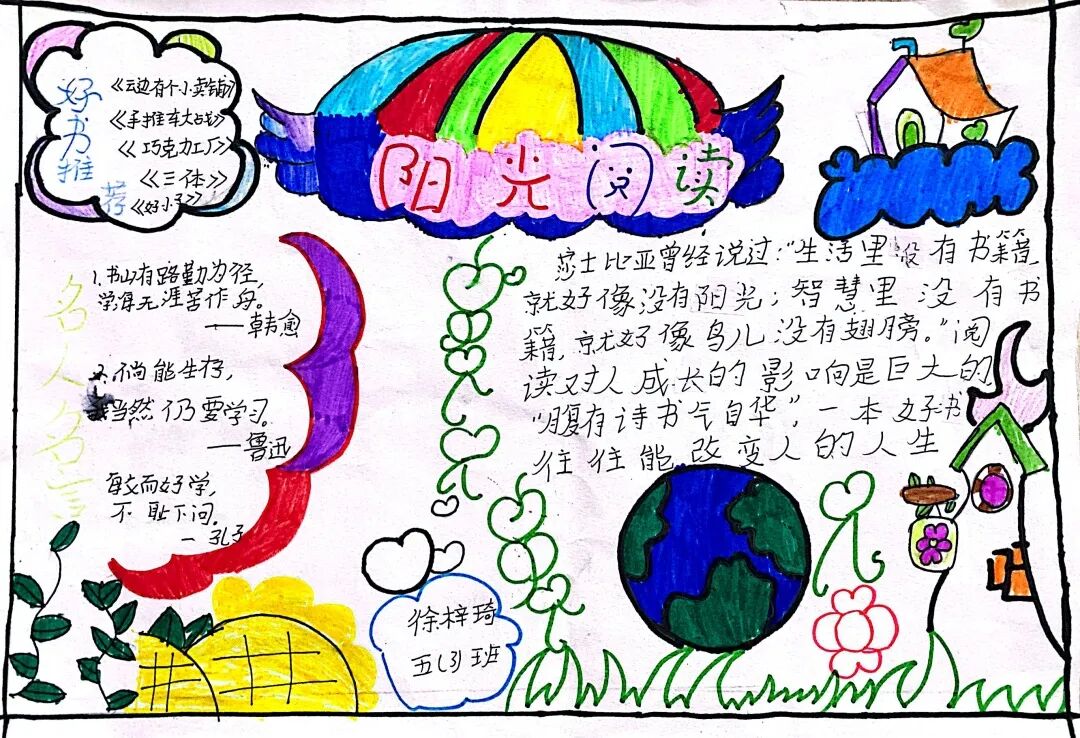 阳光阅读
好书推荐
《云边有个小卖铺》
《手推车大战》
《巧克力工厂》
《三体》
《好小子》
名人名言
1.书山有路勤为径,
学海无涯苦作舟。
——韩愈
2.倘能生存,
当然仍要学习。
——鲁迅
敏而好学,
不耻下问。
—孔子
莎士比亚曾经说过:“生活里没有书籍,
就好像没有阳光;智慧里没有书
籍,就好像鸟儿没有翅膀。”阅
读对人成长的影响是巨大的
“腹有诗书气自华”,一本好书
往往能改变人的人生
徐梓琦
五(3)班